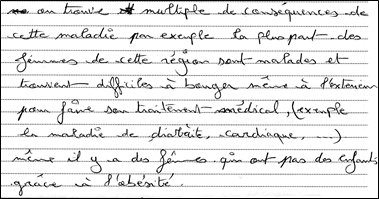 on trouve multiple de conséquences de
cette maladie par exemple la plus part des
femmes de cette région sont malades et
trouvent difficiles à bouger même à l'extérieur
pour faire son traitement médical, (exemple
la maladie de diabite, cardiaque, ...)
même il y a des femmes qui ont pas des enfants
grâce à l'obésité.